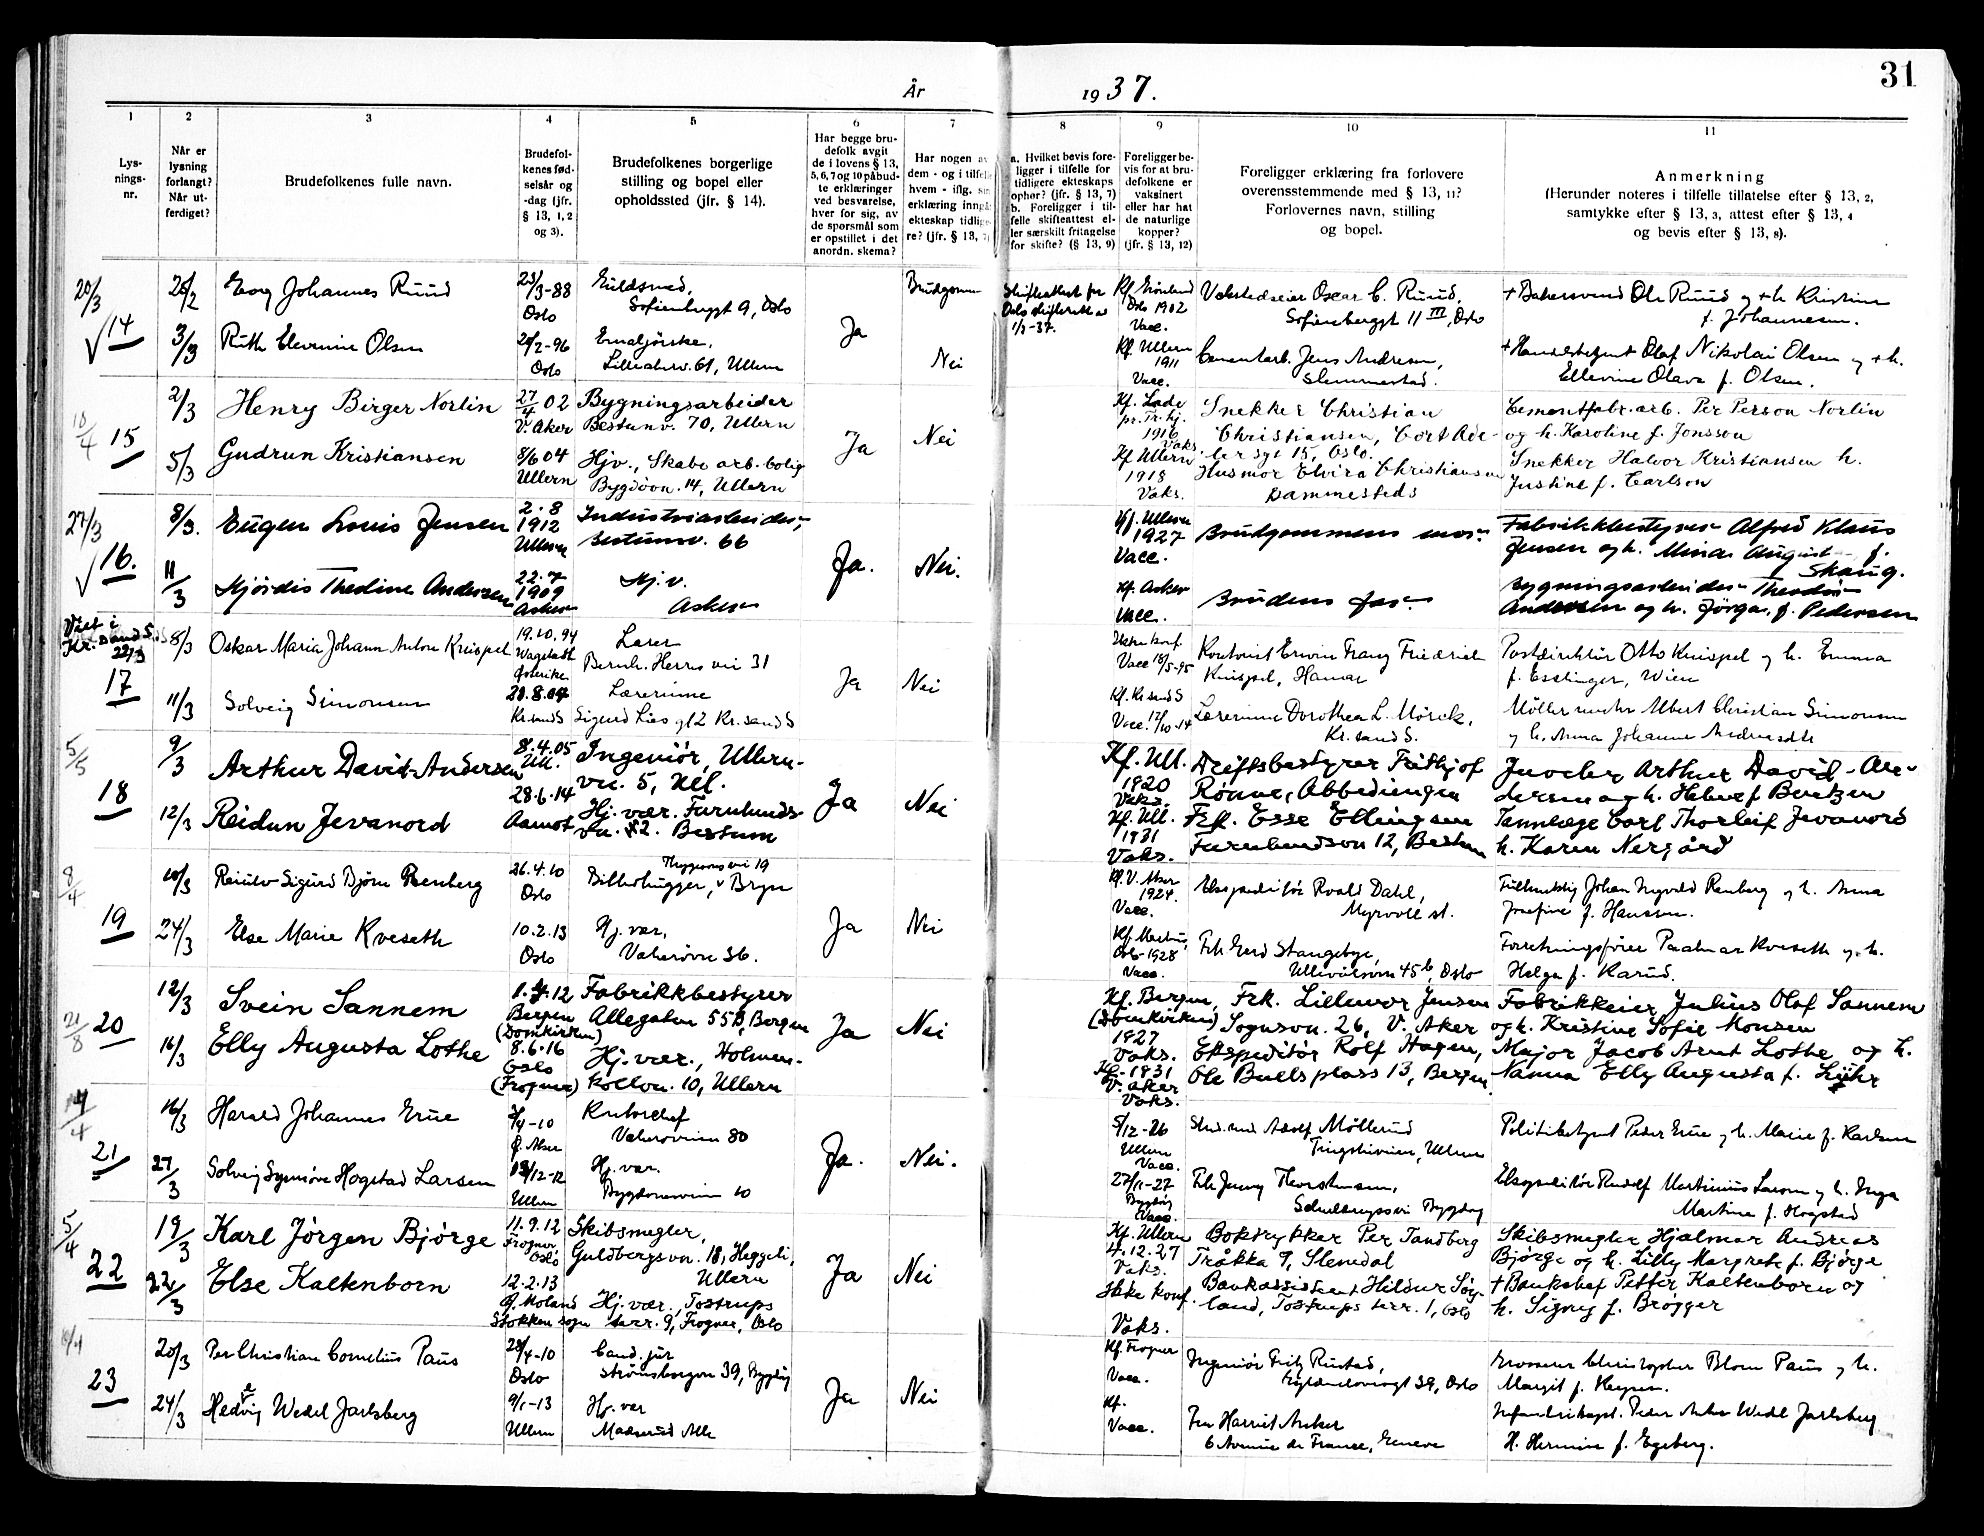 31
År 1937.
1
Lys-
nings-
nr.
2
Når er
lysning
forlangt?
Når ut-
ferdiget?
3
Brudefolkenes fulle navn.
4
Brudefol-
kenes fød-
selsår og
-dag (jfr.
§ 13, 1, 2
og 3).
5
Brudefolkenes borgerlige
stilling og bopel eller
opholdssted (jfr. § 14).
6
Har begge bru-
defolk avgit
de i lovens § 13,
5, 6, 7 og 10 påbud-
te erklæringer
ved besvarelse,
hver for sig, av
de spørsmål som
er opstillet i det
anordn. skema?
7
Har nogen av
dem - og i tilfelle
hvem - iflg. sin
erklæring inngått
ekteskap tidlige-
re? (jfr. § 13, 7)
8
a. Hvilket bevis fore-
ligger i tilfelle for
tidligere ekteskaps
ophør? (jfr. § 13, 7)
b. Foreligger i til-
felle skifteattest el-
ler særskilt fritagelse
for skifte? (§ 13, 9)
9
Foreligger be-
vis for at bru-
defolkene er
vaksinert
eller har hat
de naturlige
kopper?
(jfr. § 13, 12)
10
Foreligger erklæring fra forlovere
overensstemmende med § 13, 11?
Forlovernes navn, stilling
og bopel.
11
Anmerkning
(Herunder noteres i tilfelle tillatelse efter § 13, 2,
samtykke efter § 13, 3, attest efter § 13, 4
og bevis efter § 13, 8).
20/3
14
Johannes Ruud
23/3-88
Oslo
Gullsmed,
Sofienbergt 9, Oslo
Brudgommen
Skifteattest fra
Oslo skifterett av
1/3-37.
Oslo 1902
Vacc.
Verkstedseier Oscar C. Ruud,
Sofienbergt 11 III, Oslo
Ole Ruud og + h. Kristine
f. Johannesen.
3/3
Ruth Elevine Olsen
-96
Oslo
Lilleakerv. 61, Ullern
Ja
Nei
Kf. Ullern
1911
Vacc.
Cementarb. Jens Andresen,
Slemmestad.
Olaf Nikolai Olsen og + h.
Ellevine Olava f. Olsen.
15
2/3
Henry Birger Norlin
27/4 02
V. Aker
Bygningsarbeider
Bestumv. 70, Ullern
Ja
Nei
Kf. Lade
pr. Tr.hj.
1916
Vaks.
Snekker Christian
Christiansen, Cort Ade-
lersgt 15, Oslo.
Cementfabr.arb. Per Person Norlin
og h. Karoline f. Jonsson
5/3
Gudrun Kristiansen
8/6 04
Ullern
Hjv., Skabo arb.bolig
Bygdøvn. 14, Ullern
Kf Ullern
1918
Vaks.
Husmor Elvira Christiansen
Dammesteds
Snekker Halvor Kristiansen h.
Justine f. Carlson
27/3
16.
8/3.
Eugen Louis Jensen
2.8
1912
Ullern
Industriarbeider,
Bestumv. 66
Ja.
Nei.
Kf. Ullern
1927
Vacc.
Brudgommens mor
Fabrikkbestyrer Alfred Klaus
Jensen og h. Mina Augusta f.
Skaug.
11/3
Hjördis Thedine Andersen
22.7
1909
Asker
Hj.v.
Asker
Kf. Asker
Vacc.
Brudens far
Bygningsarbeider Theodor
Andersen og h. Jörga, f. Pedersen
Viet i
Kr.sand S.
17
8/3
Oskar Maria Johann Anton Knispel
19.10.94
Wagstadt
Østerrike
Lærer
Bernh. Herres vei 31
Ja
Nei
Vacc 18/5-95
Kontorist Erwin Franz Friedrich
Knispel, Hamar
Postdirektör Otto Knispel og h. Emma
f. Esslinger, Wien
11/3
Solveig Simonsen
Kr.sand S
Lærerinne
Kr.sand S
Kf. Kr.sand S
Lærerinne Dorothea L. Mörck,
Kr.sand S.
Albert Christian Simonsen
og h. Anna Johanne
5/5
18
9/3
Arthur David-Andersen
8.4.05
Ull.
Ingeniør, Ullern-
vn. 5, Ull.
Ja
Nei
Kf. Ull.
1920
Vaks.
Driftsbestyrer Frithjof
Rønne, Abbediengen
Juveler Arthur David-An-
dersen og h. Helene f. Bentzen
12/3
Reidun Jevanord
28.6.14
Aamot
Hj. vær. Furulunds-
vn. 12. Bestum
Kf. Ull.
1931
Vaks.
Frk. Esse Ellingsen
Furulundsvn 12, Bestum
Tannlæge Carl Thorleif Jevanord
h. Karen Nergård
8/4
19
10/3
Sigurd Björn Renberg
26.4.10
Oslo
Billedhugger, Bryn
Ja
Nei
Kf. V. Aker
1924.
Vacc.
Ekspeditör Roald Dahl,
Myrvoll st.
Johan Ingvald Renberg og h. Anna
Josefine f. Hanssen.
24/3
Else Marie Kveseth
10.2.13
Oslo
Hj. vær,
Vækerøvn 36.
Oslo-1928
Vacc.
Frk Gerd Stangebye,
Ullevålsvn 45b, Oslo
Forretningsfører Paalmar Kveseth og h.
Helga f. Karud.
21/8
20
12/3
Svein Sannem
1.4.12
Bergen
(Domkirken)
Fabrikkbestyrer
Allegaten 55B, Bergen
Ja
Nei
Kf. Bergen
(Domkirken)
1927
Vaks.
Frk. Lillemor Jensen
Sognsvn. 26, V. Aker
Fabrikkeier Julius Olaf Sannem
og h. Kristine Sofie Monsen
16/3
Elly Augusta Lothe
8.6.16
Oslo
(Frogner)
Hj. vær., Holmen-
kollvn. 10, Ullern
Kf. 1931
V. Aker
Vaks.
Ekspeditør Rolf Hagen,
Ole Bulls plass 13, Bergen
Major Jacob Arnt Lothe og h.
Nanna Elly Augusta f. Lühr
21
16/3
Harald Johannes Erue
Ø. Aker
Kontorchef
Vækerøveien 80
Ja.
Nei.
5/12-26
Ullern
Vacc.
Stud. med Adolf Møllerud
Tingstuveien, Ullern
Politibetjent Peder Erue og h. Marie f. Karlsen
27/3
Solveig Synnöve Hogstad Larsen
Ullern
Hj. vær.
Bygdønesveien 10
27/11-27
Bygdøy
Vacc.
Frk Jenny Thorstensen,
Bygdøy
Ekspeditör Rudolf Martinius Larsen og h. Inga
Martine f. Hogstad
5/4
22
19/3
Karl Jørgen Bjørge
11.9.12
Frogner,
Oslo
Skibsmegler,
Guldbergsvn. 18, Heggeli,
Ullern
Ja
Nei
Kf. Ullern
4.12.27
Vaks.
Boktrykker Per Tandberg
Tråkka 9, Slemdal
Skibsmegler Hjalmar Andreas
Bjørge og h. Lilly Margrete f. Bjørge
22/3
Else Kaltenborn
12.2.13
Ø. Moland
Stokken sogn
Hj. vær., Tostrups
terr. 9, Frogner, Oslo
Ikke konf.
Vaks.
Bankassistent Hildur Sør-
land, Tostrups terr. 1, Oslo
+ Banksjef Petter Kaltenborn og
h. Signy f. Brøgger
23
20/3
Per Christian Cornelius Paus
28/4-10
Oslo
Cand. jur
Strømsborgvn 39, Bygdøy
Ja
Nei
Kf. Frogner
Vacc.
Ingeniør Fritz Rustad,
39, Oslo
Grosserer Christopher Blom Paus og h.
Margit f. Heyen.
24/3
Hedevig Wedel Jarlsberg
9/1-13
Ullern
Hj. vær
Madserud Alle
Kf.
Vacc.
Fru Harriet Anker
6 Avenue de France, Geneve
Peder Anker Wedel Jarlsberg
H. Hermine f. Egeberg.